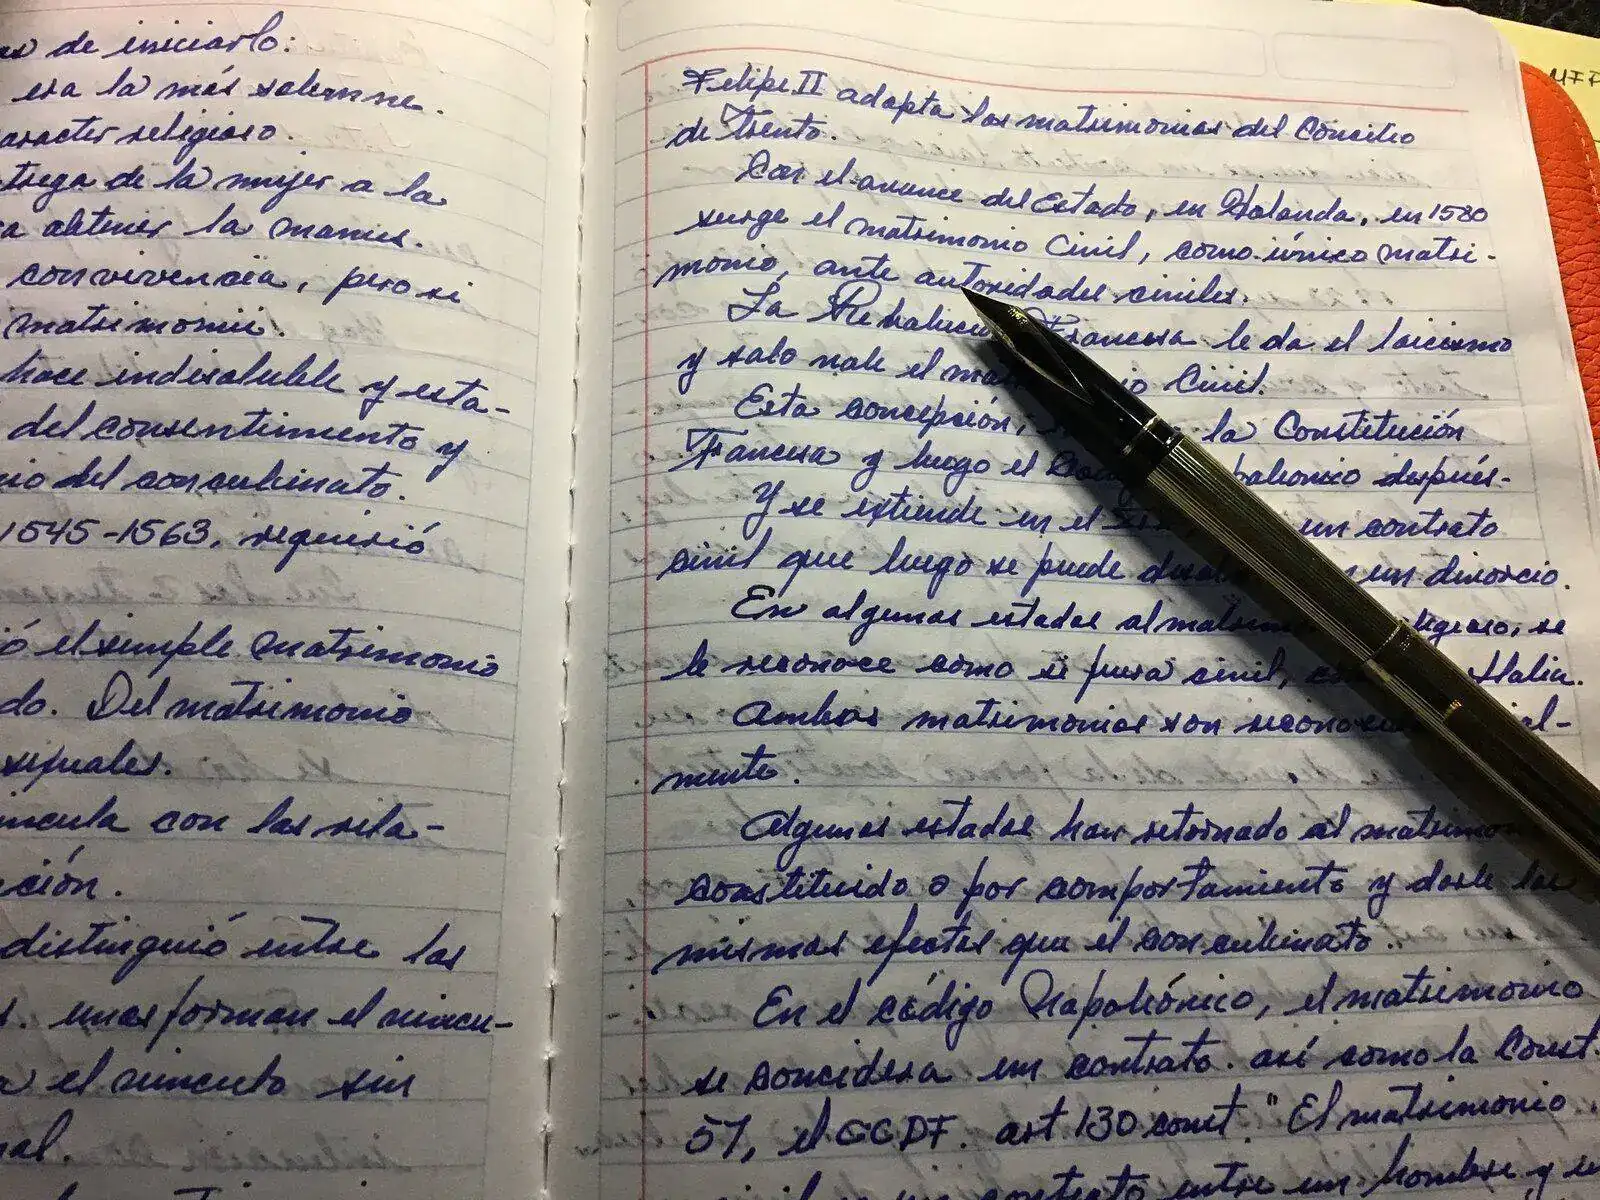 as de iniciarlo:
era la más solemne.
caracter religioso.
trega de la mujer a la
a obtener la manus.
convivencia, pero si
matrimonii.
hace indisoluble y esta-
del consentimiento y
io del concubinato.
1545-1563, requirió
ó el simple matrimonio
do. Del matrimonio
sexuales.
incula con las rela-
ción.
distinguió entre las
s. unas forman el víncu-
a el vínculo sin
nal.
Felipe II adopta los matrimonios del Concilio
de Trento.
Con el avance del Estado, en Holanda, en 1580
surge el matrimonio Civil, como único matri-
monio, ante autoridades civiles.
La Revolución Francesa le da el laicismo
y solo vale el ma io Civil.
Esta concepción, la Constitución
Francesa y luego el poleonico después.
Y se extiende en el un contrato
civil que luego se puede un divorcio.
En algunos estados al matrim ligioso, se
le reconoce como si fuera civil, Italia.
Ambos matrimonios son reconoci al-
mente.
Algunos estados han retornado al matrimon
constituido o por comportamiento y darle los
mismos efectos que el concubinato.
En el código Napoleónico, el matrimonio
se concidera un contrato. así como la Const.
57, el CCDF. art 130 const. "El matrimonio
civil es un contrato entre un hombre y un